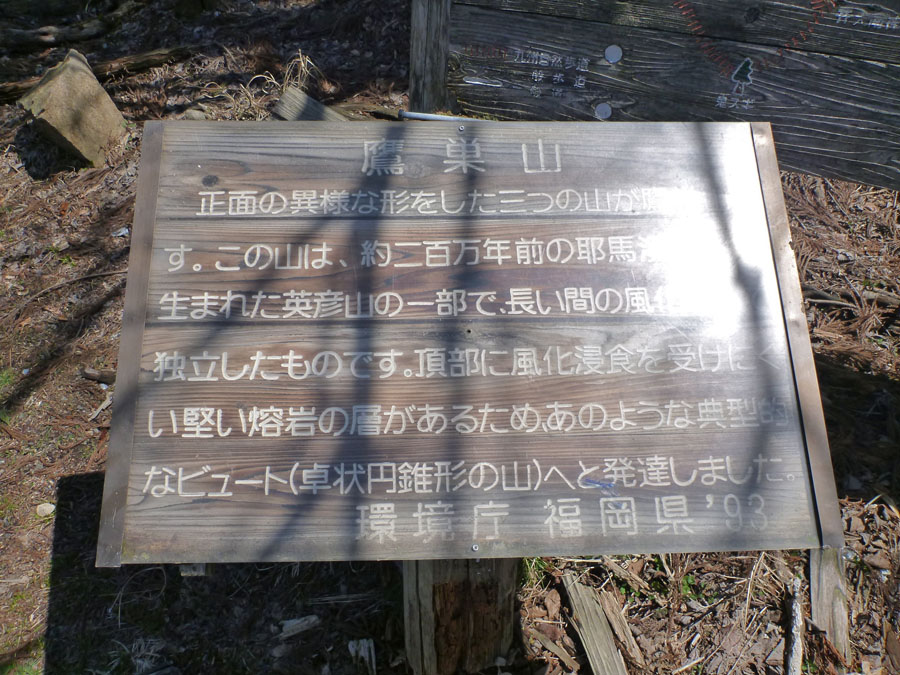 九州自然歩道
鷹巣山
正面の異様な形をした三つの山が
す。この山は、約二百万年前の耶馬
生まれた英彦山の一部で、長い間の風化
独立したものです。頂部に風化浸食を受けにく
い堅い熔岩の層があるため、あのような典型的
なビュート(卓状円錐形の山)へと発達しました。
環境庁 福岡県 '93